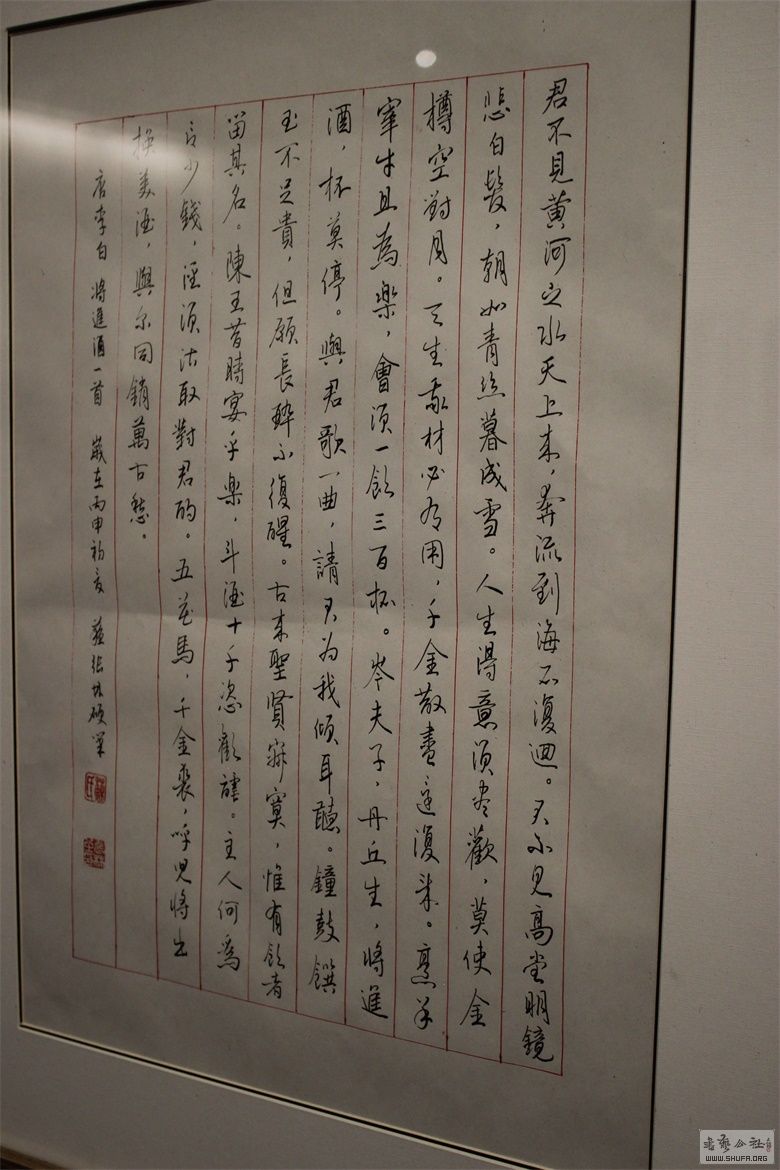 君不見黃河之水天上來，奔流到海不復迴。君不見高堂明鏡
悲白髮，朝如青絲暮成雪。人生得意須盡歡，莫使金
樽空對月。天生我材必有用，千金散盡還復來。烹羊
宰牛且為樂，會須一飲三百杯。岑夫子，丹丘生，將進
酒，杯莫停。與君歌一曲，請君为我傾耳聽。鐘鼓饌
玉不足貴，但願長醉不復醒。古來聖賢寂寞，惟有飲者
留其名。陳王昔時宴平樂，斗酒十千恣歡謔。主人何為
言少錢，徑須沽取對君酌。五花馬，千金裘，呼兒將出
換美酒，與尔同銷萬古愁。
唐李白將進酒一首 歲在丙申初夏
書藝公社
WWW.SHUFA.ORG